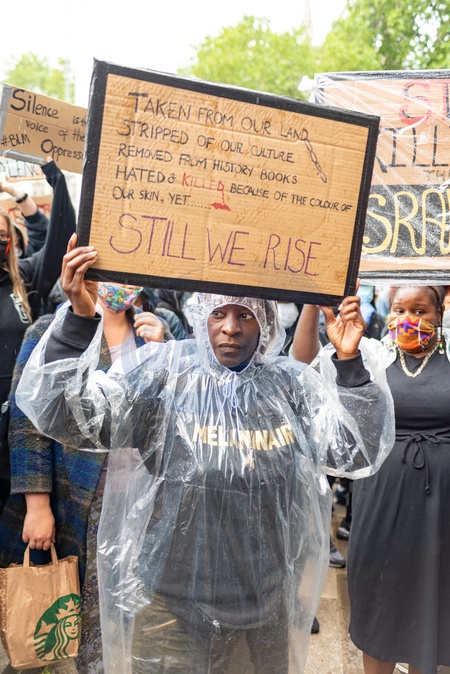 TAKEN FROM OUR LAND
STRIPPED OF OUR CULTURE
REMOVED FROM HISTORY BOOKS
HATED & KILLED BECAUSE OF THE COLOUR OF
OUR SKIN, YET......
STILL WE RISE
Silence is the
voice of the
#BLM Oppress
KILL
SRA
MELANINAIR